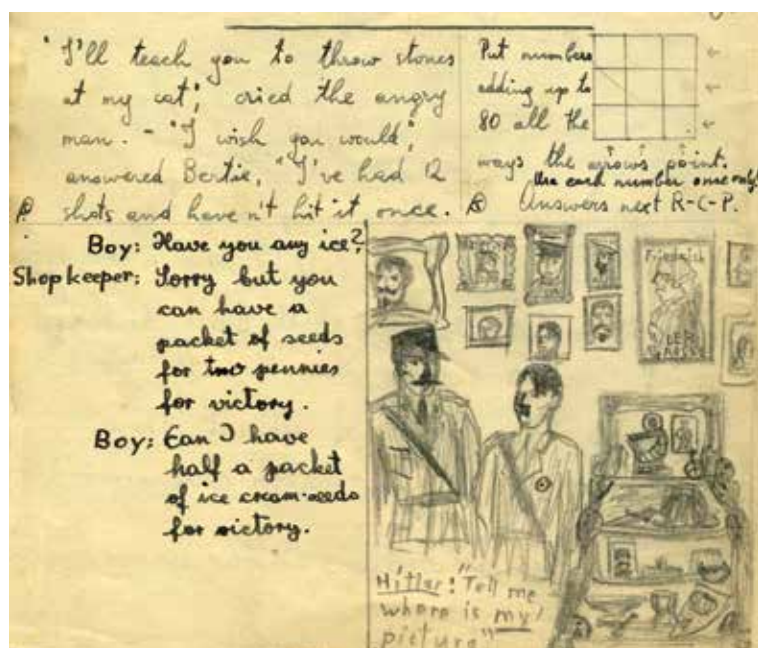 "I'll teach you to throw stones
at my cat", cried the angry
man. - "I wish you would",
answered Bertie, "I've had 12
shots and haven't hit it once.
Put numbers
adding up to
80 all the
ways the arrows point.
Use each number once only!
Answers next R-C-P.
Boy: Have you any ice?
Shopkeeper: Sorry but you
can have a
packet of seeds
for two pennies
for victory.
Boy: Can I have
half a packet
of ice cream-seeds
for victory.
Friedrich
DER
GROSSE
Hitler: "Tell me
where is my
picture"